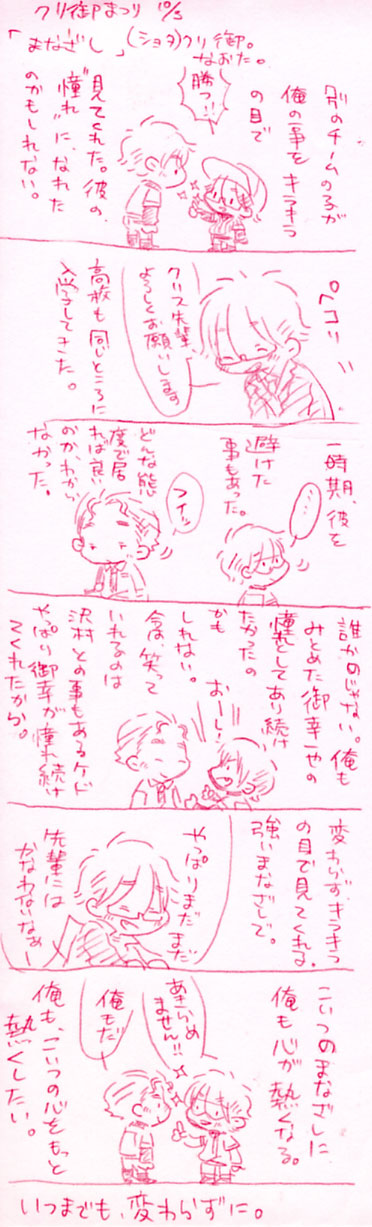 クリ御まつり 10/3
「まなざし」(ショタ)クリ御。
なおた。
別のチームの子が
俺の事をキラキラ
の目で
勝つ!!
見てくれた。彼の、
"憧れ"に、なれた
のかもしれない。
ペコリ
クリス先輩
よろしくお願いします
高校も同じところに
入学してきた。
一時期、彼を
避けた
事もあった。
・・・
フイッ
どんな態
度で居
れば良い
のか、わから
なかった。
誰かのじゃない。俺も
みとめた御幸一也の
憧れとしてあり続け
たかったの
かも
しれない。
おーし!
今は、笑って
いれるのは
沢村との事もあるケド
やっぱり御幸が憧れ続け
てくれたから。
変わらず、キラキラ
の目で見てくれる、
強いまなざしで。
やっぱりまだまだ
先輩には
かなわないなぁー
こいつのまなざしに
俺も心が熱くなる。
あきらめ
ません!!
俺もだ
俺も、こいつの心をもっと
熱くしたい。
いつまでも、変わらずに。